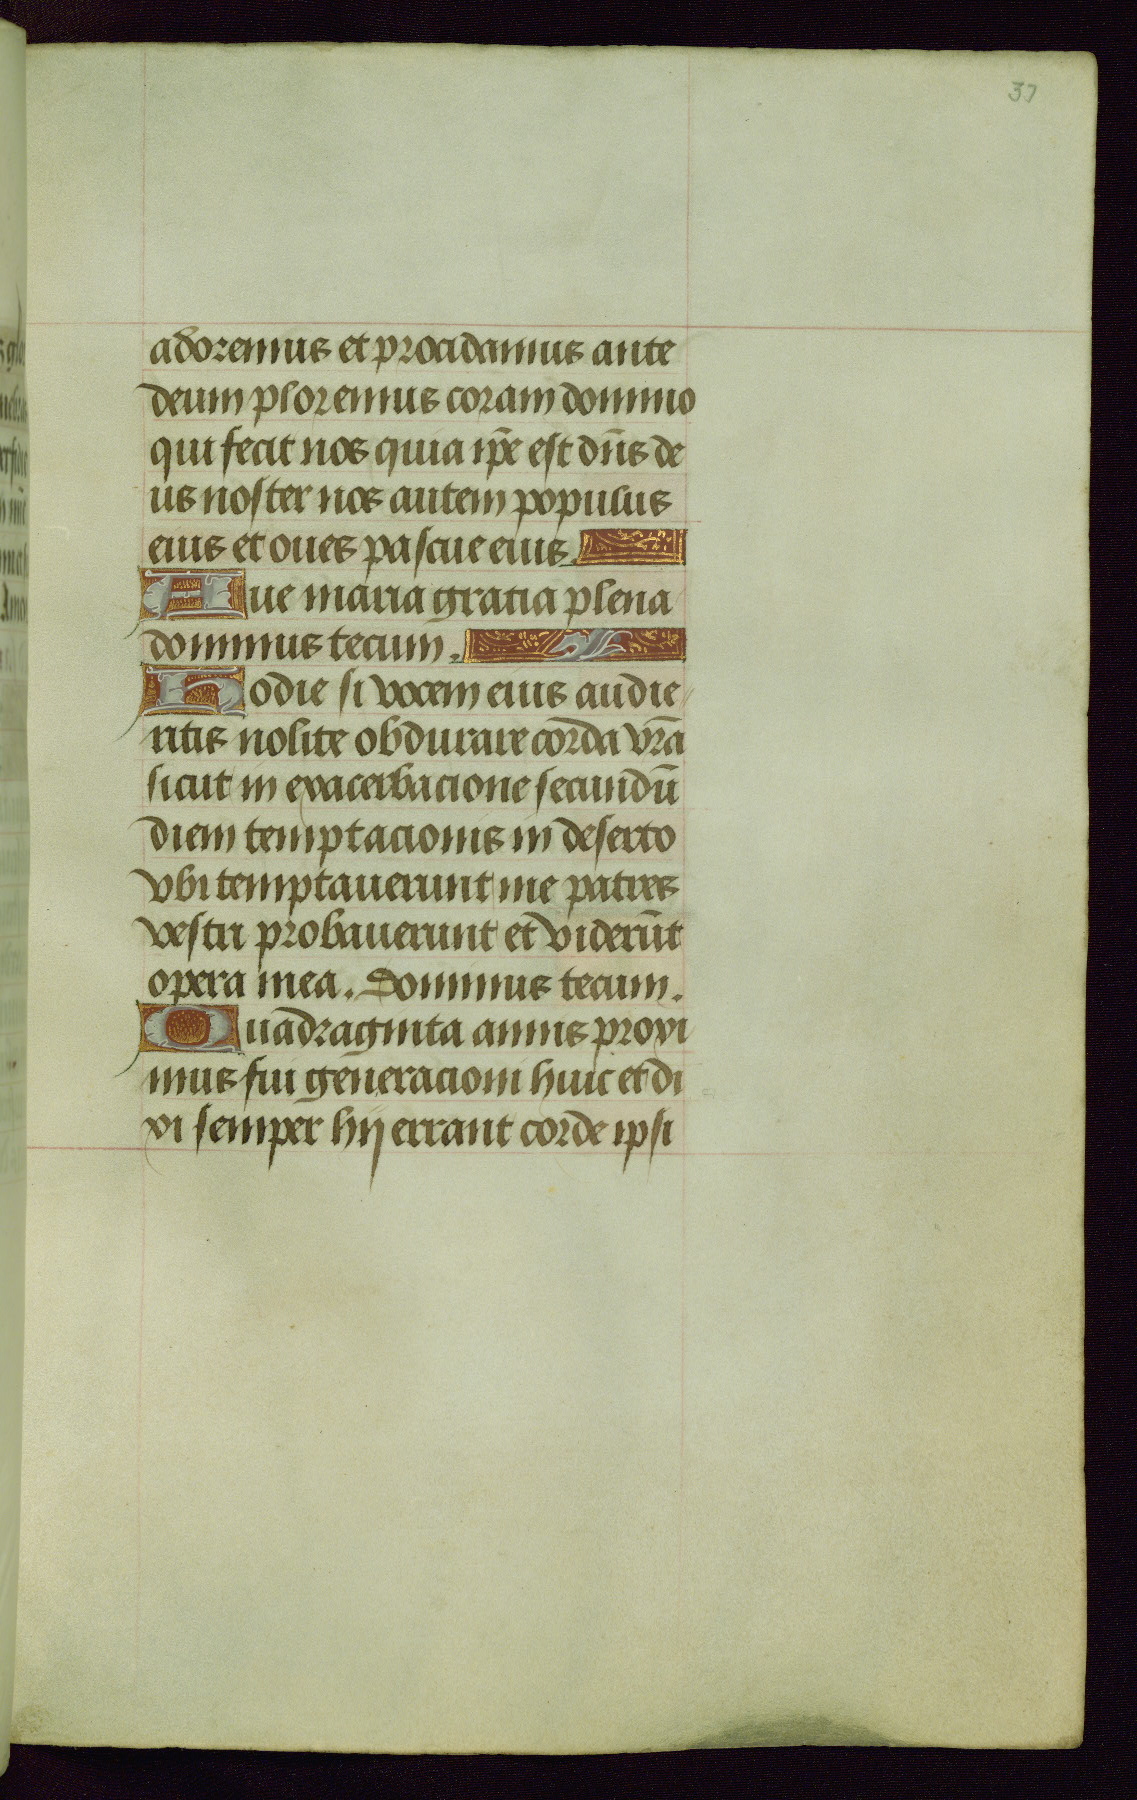 37
adoremus et procidamus ante
deum ploremus coram domino
qui fecit nos quia ip̄e est dn̄s de
us noster nos autem populus
eius et oues pascue eius.
Aue maria gratia plena
dominus tecum.
Hodie si vocem eius audie
ritis nolite obdurare corda vr̄a
sicut in exacerbacione secundū
diem temptacionis in deserto
vbi temptauerunt me patres
vestri probauerunt et viderūt
opera mea. Dominus tecum.
Quadraginta annis proxi
mus fui generacioni huic et di
xi semper hij errant corde ipsi